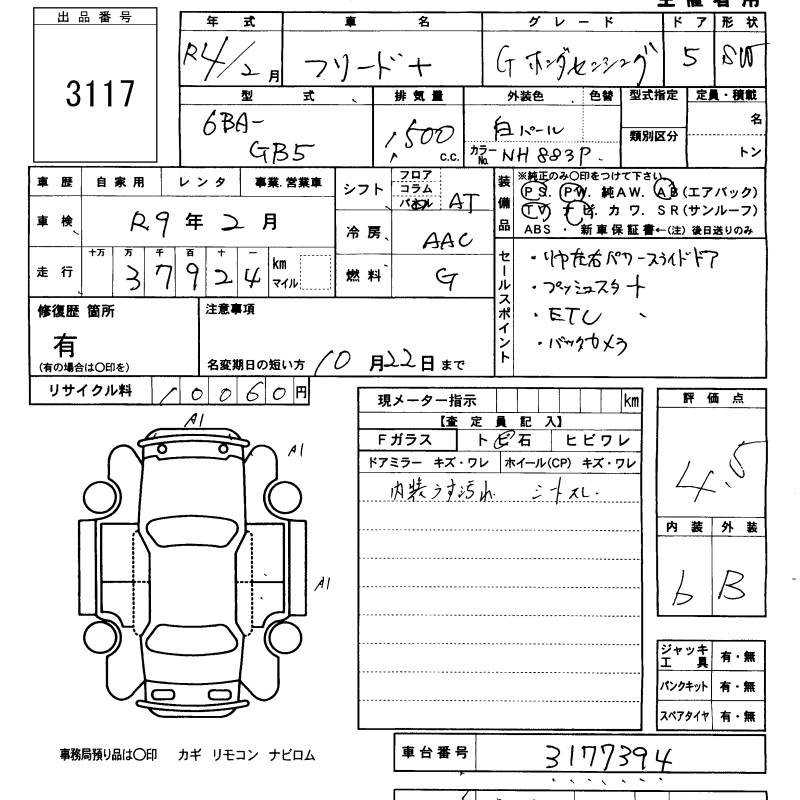 出品番号
3117
年式 車名 グレード ドア 形状
R4/2月 フリード+ G ホンダセンシング 5 SW
型式 排気量 外装色 色替 型式指定 定員・積載
6BA-GB5 1500 c.c. 白パール 類別区分 名
カラーNo. NH883P トン
車歴 自家用 レンタ 事業.営業車
シフト フロア コラム パネル AT
装備品 ※純正のみ〇印をつけて下さい。
PS. PW. 純AW. AB(エアバック)
TV ナビ. カワ. SR(サンルーフ)
ABS ・ 新車保証書←(注) 後日送りのみ
車検 R9年2月
冷房 AAC
走行 十万 万 千 百 十 一
37924 km マイル
燃料 G
セールスポイント
・リヤ左右パワースライドドア
・プッシュスタート
・ETC
・バックカメラ
修復歴 箇所
有
(有の場合は〇印を)
注意事項
名変期日の短い方 10月22日まで
リサイクル料 10060円
現メーター指示 km
【査定員記入】
Fガラス ト ビ 石 ヒビワレ
ドアミラー キズ・ワレ ホイール(CP) キズ・ワレ
内装うす汚れ シートスレ
評価点
4.5
内装 外装
b B
A1
A1
A1
ジャッキ工具 有・無
パンクキット 有・無
スペアタイヤ 有・無
事務局預り品は〇印 カギ リモコン ナビロム
車台番号 3177394